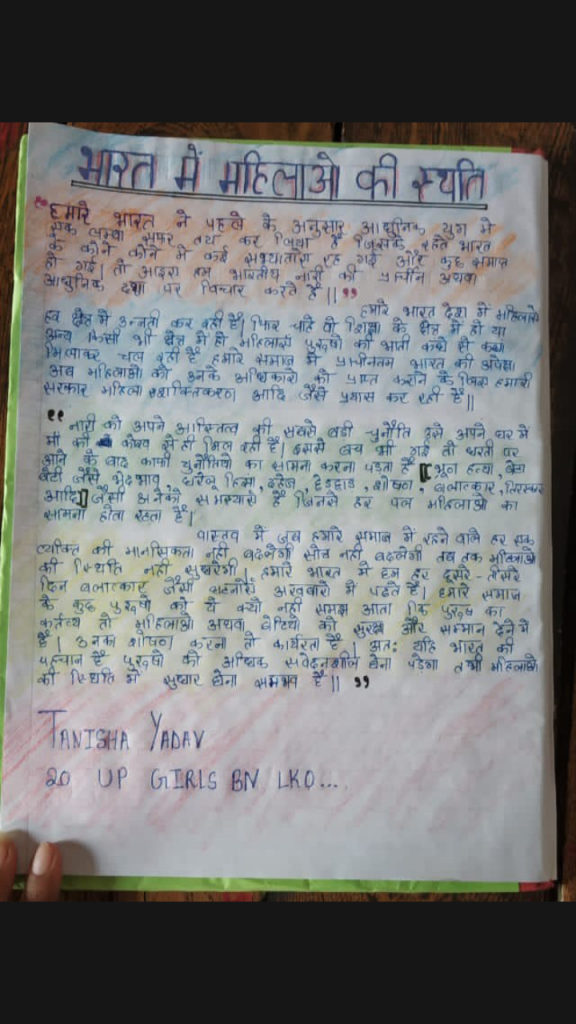 भारत में महिलाओ की स्थति
"हमारे भारत ने पहले के अनुसार आधुनिक युग में
एक लम्बा सफर तय कर लिया है जिसके रहते भारत
के कोने कोने में कई सभ्यताऐ रह गई और कुछ समाप्त
हो गई। तो आइए हम भारतीय नारी की प्राचीन अथवा
आधुनिक दशा पर विचार करते है॥"
हमारे भारत देश में महिलाऐ
हर क्षेत्र में उन्नती कर रही है। फिर चाहे वो शिक्षा के क्षेत्र में हो या
अन्य किसी भी क्षेत्र में हो महिलाऐ पुरुषो की भाती कंधे से कन्धा
मिलाकर चल रही है हमारे समाज में प्राचीनतम भारत की अपेक्षा
अब महिलाओ को उनके अधिकारो को प्राप्त कराने के लिए हमारी
सरकार महिला सशक्तिकरण आदि जैसे प्रयास कर रही है॥
"नारी को अपने अस्तित्व की सबसे बडी चुनौति उसे अपने घर में
माँ की कोख से ही मिल रही है। इससे बच भी गई तो धरती पर
आने के बाद काफी चुनौतियो का सामना करना पडता है [भ्रूण हत्या, बेटा
बेटी जैसे भेदभाव, घरेलू हिंसा, दहेज, छेड़छाड़, शोषण, बलात्कार, तिरस्कार
आदि] जैसी अनेको समस्याऐ है जिनसे हर पल महिलाओ का
सामना होता रहता है।
वास्तव में जब हमारे समाज में रहने वाले हर एक
व्यक्ति की मानसिकता नही बदलेगी सोच नही बदलेगी तब तक महिलाओ
की स्थिति नही सुधरेगी। हमारे भारत में हम हर दूसरे-तीसरे
दिन बलात्कार जैसी घटनाऐ अखबारो में पढते है। हमारे समाज
के कुछ पुरुषो को ये क्यो नही समझ आता कि पुरुष का
कर्तव्य तो महिलाओ अथवा बेटियो को सुरक्षा और सम्मान देने में
है। उनका शोषण करना तो कार्यरता है। अतः यदि भारत की
पहचान है पुरुषो को अधिक संवेदनशील होना पड़ेगा तभी महिलाओ
की स्थिति में सुधार होना सम्भव है॥"
TANISHA YADAV
20 UP GIRLS BN LKO...